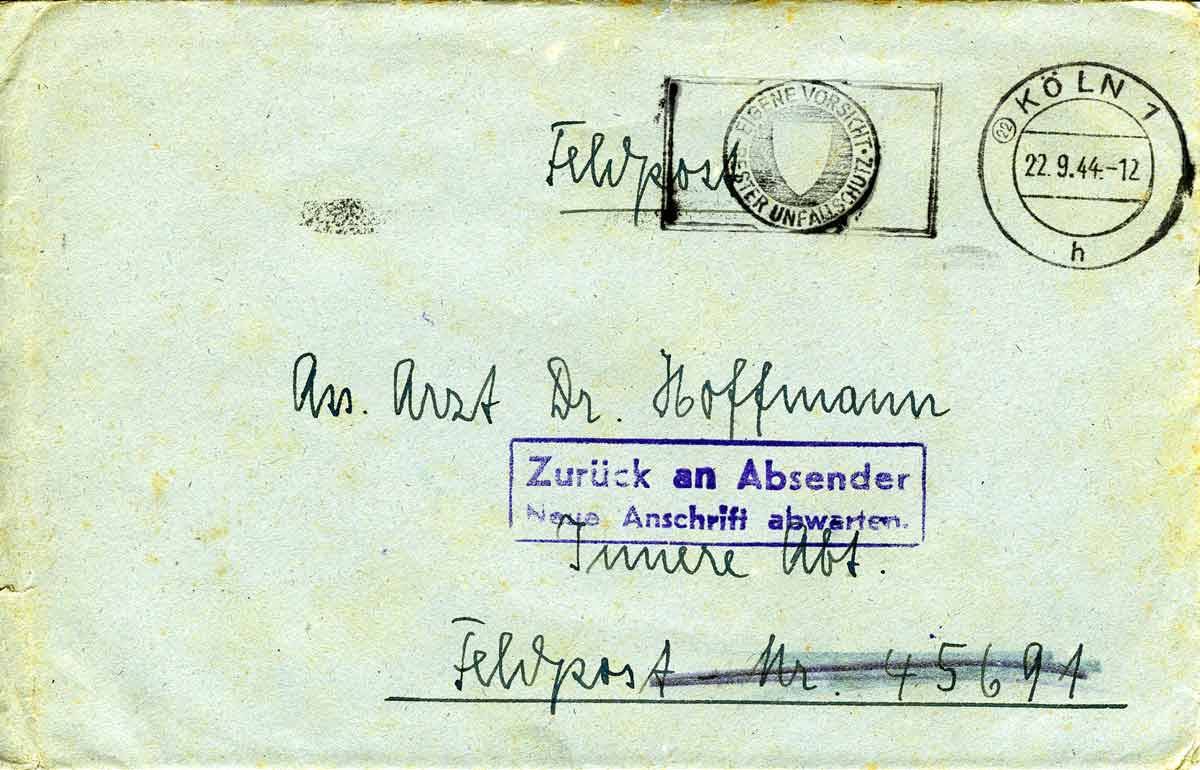 Feldpost
EIGENE VORSICHT · BESTER UNFALLSCHUTZ ·
KÖLN 1
22
22.9.44.-12
h
Ass. Arzt Dr. Hoffmann
Zurück an Absender
Neue Anschrift abwarten.
Innere Abt.
Feldpost - Nr. 45691